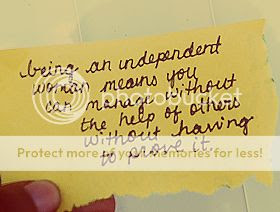 being an independent
woman means you
can manage without
the help of others
without having
to prove it.
photobucket
Protect more of your memories for less!